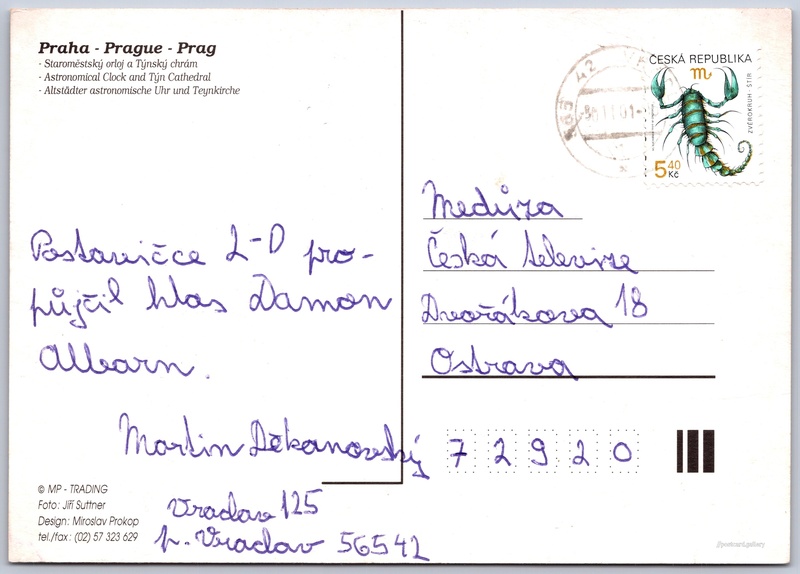 Praha - Prague - Prag
- Staroměstský orloj a Týnský chrám
- Astronomical Clock and Týn Cathedral
- Altstädter astronomische Uhr und Teynkirche
ČESKÁ REPUBLIKA
ZVĚROKRUH - ŠTÍR
5 40 Kč
Postavičce 2-D pro-
půjčil hlas Damon
Albarn.
Martin Děkanovský
Vraclav 125
p. Vraclav 56542
Medúza
Česká televize
Dvořákova 18
Ostrava
72920
© MP - TRADING
Foto: Jiří Suttner
Design: Miroslav Prokop
tel./fax: (02) 57 323 629